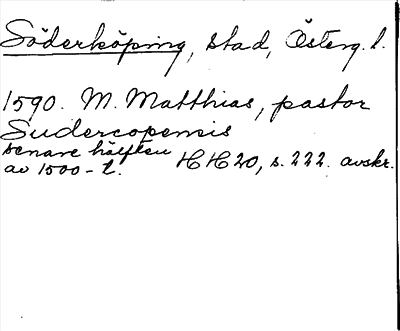 Söderköping, stad, Österg. l.
1590. M. Matthias, pastor
Sudercopensis
senare hälften
av 1500-t. HH20, s. 222. avskr.